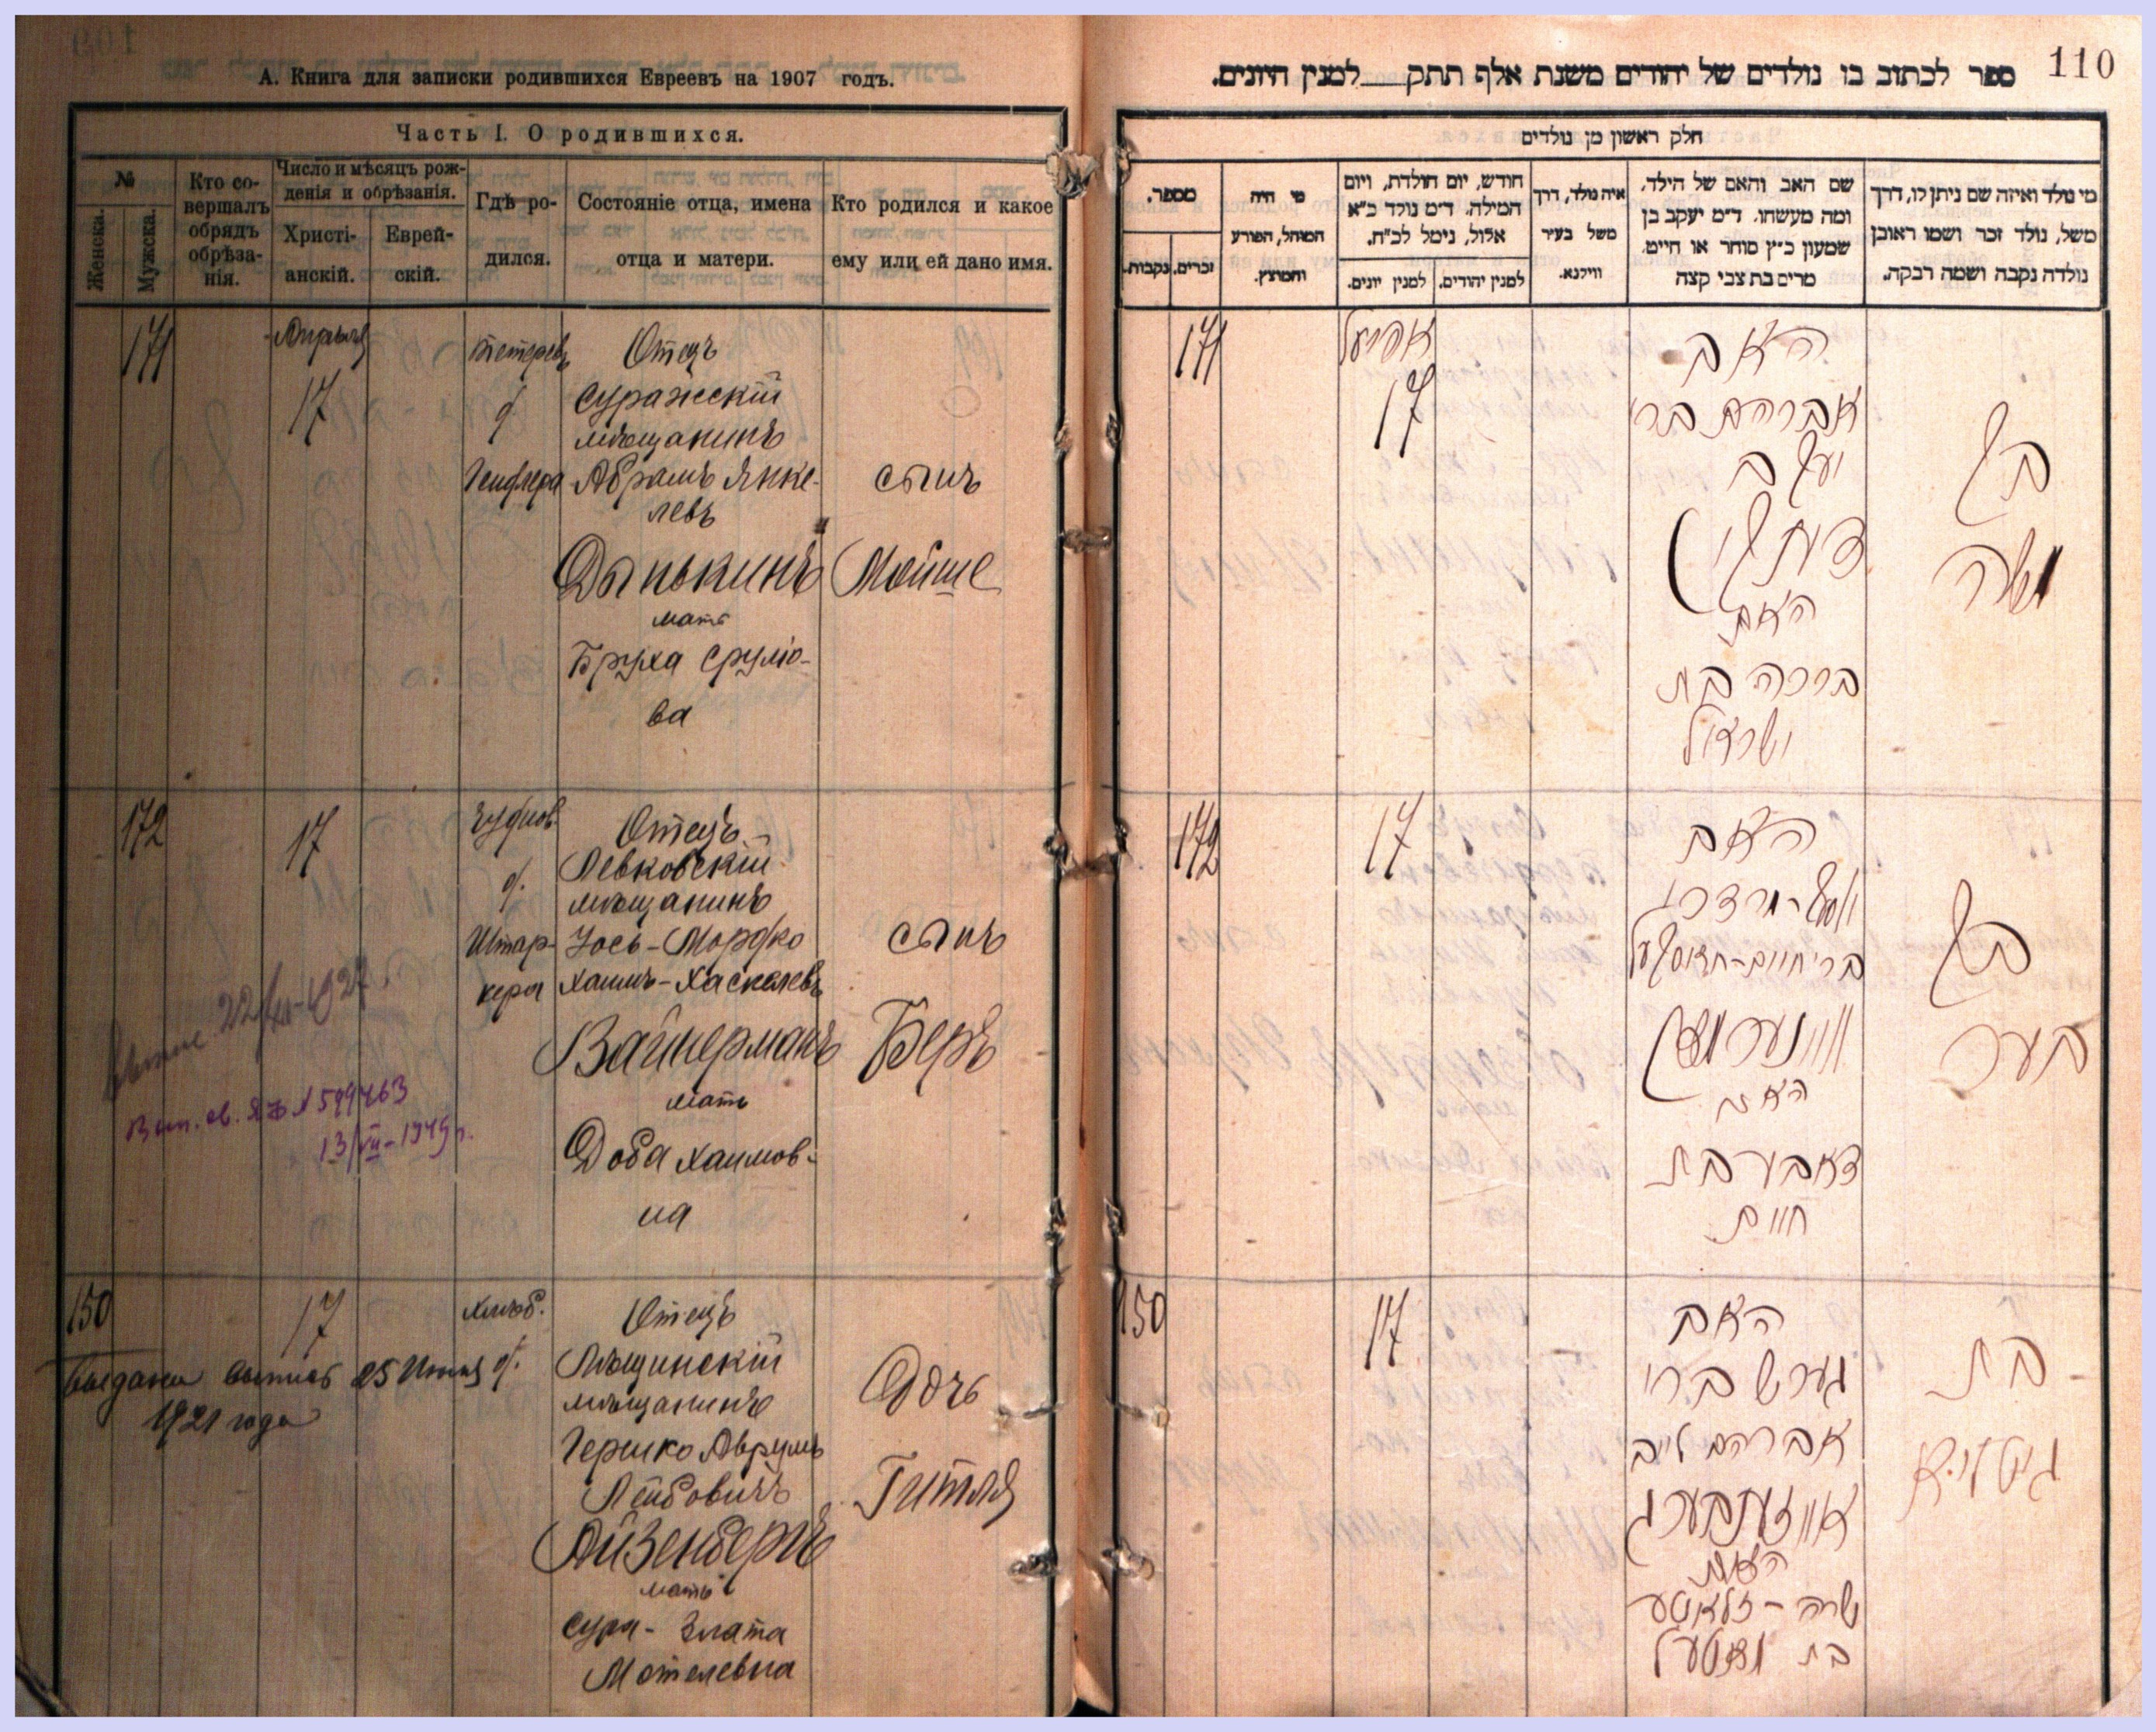 А. Книга для записки родившихся Евреевъ на 1907 годъ.
Часть I. О родившихся.
№
Женска.
Мужска.
Кто совершалъ обрядъ обрѣзанія.
Число и мѣсяцъ рожденія и обрѣзанія.
Христіанскій.
Еврейскій.
Гдѣ родился.
Состояніе отца, имена отца и матери.
Кто родился и какое ему или ей дано имя.
171
Апрѣля
17
д.
Отецъ
Суражскій
мѣщанинъ
Абрамъ Янке-
левъ
Дынькинъ
мать
Бруха Сруліо-
ва
сынъ
Мойше
172
17
Чуднов.
д.
Штар-
кера
Отецъ
Левковскій
мѣщанинъ
Іось-Мордко
Хаимъ-Хаскелевъ
Вайнерманъ
мать
Доба Хаимов-
на
сынъ
Беръ
22/XII-1927.
Вып. св. ЯЖ №599463
13/VII-1949г.
150
17
Хлѣб.
д.
Выдана выпись 25 Іюня
1921 года
Отецъ
мѣщанинъ
Гершко Аврумъ
Лейбовичъ
Айзенбергъ
мать
Сура-Злата
Мотелевна
Дочь
Гитля
110
ספר לכתוב בו נולדים של יהודים משנת אלף תתק___למנין היונים.
חלק ראשון מן נולדים
מספר.
זכרים.
נקבות.
מי היה
המוהל, הפורע
והמוצץ.
חודש, יום הולדת, ויום
המילה. ד״מ נולד כ״א
אלול, נימל לכ״ח.
למנין יונים.
למנין יהודים.
איה נולד, דרך
משל בעיר
ווילנא.
שם האב והאם של הילד,
ומה מעשהו. ד״מ יעקב בן
שמעון כ״ץ סוחר או חייט.
מרים בת צבי קצה
מי נולד ואיזה שם ניתן לו, דרך
משל, נולד זכר ושמו ראובן
נולדה נקבה ושמה רבקה.
171
אפריעל
17
האב
אברהם ברי
יעקב
האם
ברכה בת
ישראל
בן
משה
172
17
האב
יוסף-מרדכי
ברי חיים-יחזקעל
וויינערמאן
האם
דאבע בת
חיים
בן
בער
150
17
האב
גערש ברי
אברהם לייב
אייזענבערג
האם
שרה-זלאטע
בת מאטעל
בת
גיטליא